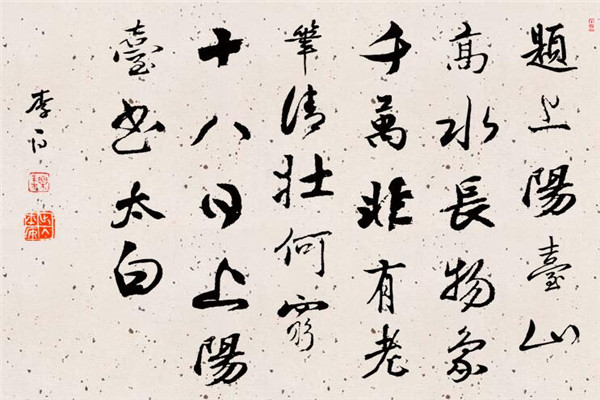 題上陽臺山
高水長物象
千萬非有老
筆清壯何窮
十八日上陽
臺書太白
李